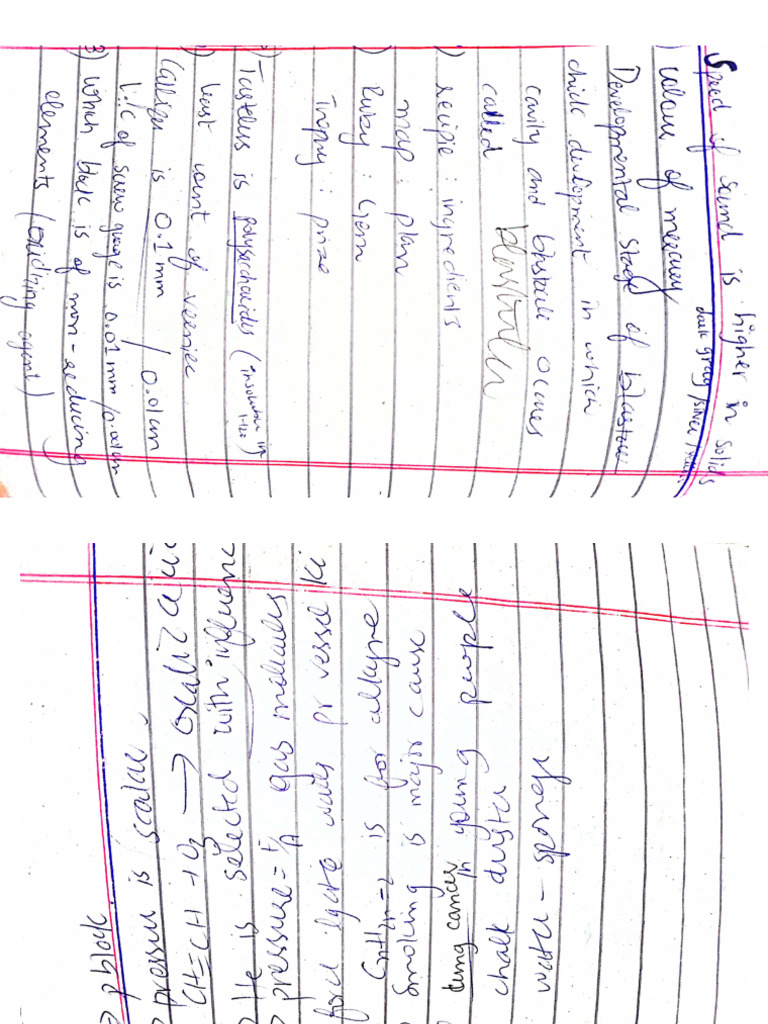 Speed of sound is higher in solids
) colour of mercury dark gray/silver/
Developmental stage of blastula
chick development in which
cavity and blastocoele occurs
called
) recipie : ingredients
map : plan
Ruby : Gem
Trophy : prize
) Tasteless is polysaccharides (insoluble in H2O)
) least count of vernier
calliper is 0.1mm / 0.01cm
L.C of screw guage is 0.01mm/0.001cm
3) which block is of non-reducing
elements (oxidizing agent)
→ p block.
→ pressure is scalar.
CH≡CH + O2 →
→ He is selected with influence
→ pressure = F/A gas molecules
force walls vessel ki
CnH2n-2 is for alkyne
Smoking is major cause
lung cancer in young people
chalk duster
water - sponge